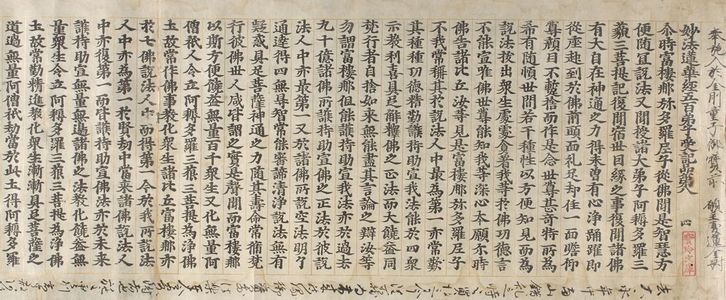 妙法蓮華經五百弟子受記品第八
尒時富樓那弥多羅尼子從佛聞是智慧方
便隨宜說法又聞授諸大弟子阿耨多羅三
藐三菩提記復聞宿世因緣之事復聞諸佛
有大自在神通之力得未曾有心淨踊躍即
從座起到於佛前頭面礼足却住一面瞻仰
尊顏目不暫捨而作是念世尊甚奇特所為
希有隨順世間若干種性以方便知見而為
說法拔出眾生處處貪著我等於佛功德言
不能宣唯佛世尊能知我等深心本願尒時
佛告諸比丘汝等見是富樓那弥多羅尼子
不我常稱其於說法人中最為第一亦常歎
其種種功德精勤護持助宣我法能於四眾
示教利喜具足解釋佛之正法而大饒益同
梵行者自捨如來無能盡其言論之辯汝等
勿謂富樓那但能護持助宣我法亦於過去
九十億諸佛所護持助宣佛之正法於彼說
法人中亦最第一又於諸佛所說空法明了
通達得四無㝵智常能審諦清淨說法無有
疑惑具足菩薩神通之力隨其壽命常脩梵
行彼佛世人咸皆謂之實是聲聞而富樓那
以斯方便饒益無量百千眾生又化無量阿
僧祇人令立阿耨多羅三藐三菩提為淨佛
土故常作佛事教化眾生諸比丘富樓那亦
於七佛說法人中而得第一今於我所說法
人中亦為第一於賢劫中當來諸佛說法人
中亦復第一而皆護持助宣佛法亦於未來
護持助宣無量無邊諸佛之法教化饒益無
量眾生令立阿耨多羅三藐三菩提為淨佛
土故常勤精進教化眾生漸漸具足菩薩之
道過無量阿僧祇劫當於此土得阿耨多羅